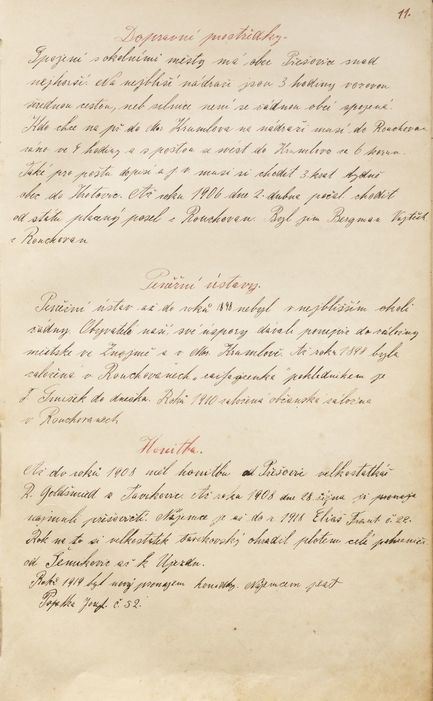 11.
Dopravní prostředky.
Spojení s okolními městy má obec Přešovice snad
nejhorší. Na nejbližší nádraží jsou 3 hodiny vozovou
cestou, neb silnice není se žádnou obcí spojená
Kdo chce na př do Mor. Krumlova na nádraží musí do Rouchovan
ráno ve 4 hodiny a s poštou se svést do Krumlova ve 6 hodin.
Také pro poštu dopisů a j v. musí si chodit 3 krát týdně
obec do Hrotovic. Až roku 1906 dne 2. dubna počal chodit
od státu placený posel z Rouchovan. Byl jím Bergman Vojtěch
z Rouchovan
Peněžní ústavy.
Peněžní ústav až do roků 1898 nebyl v nejbližším okolí
žádný. Obyvatelé naší své úspory dávali ponejvíc do záložny
městské ve Znojmě a v Mor. Krumlově. Až roku 1898 byla
založena v Rouchovanech „raifaizenka" pokladníkem je
do dneška. Roku 1910 založena občanská záložna
v Rouchovanech
Honitba.
Až do roků 1908 měl honitbu od Přešovic velkostatkář
R. Goldsmied z Tavíkovic Až roku 1908 dne 28 října si
najmuli přešovičtí. Nájemce je až do r 1918 Eliáš Frant č. 22.
Rok na to si velkostatek tavíkovský ohradil plotem celé
od až k Újezdu.
Roku 1919 byl nový pronájem honitby. Nájemcem jest
Josef č. 52.